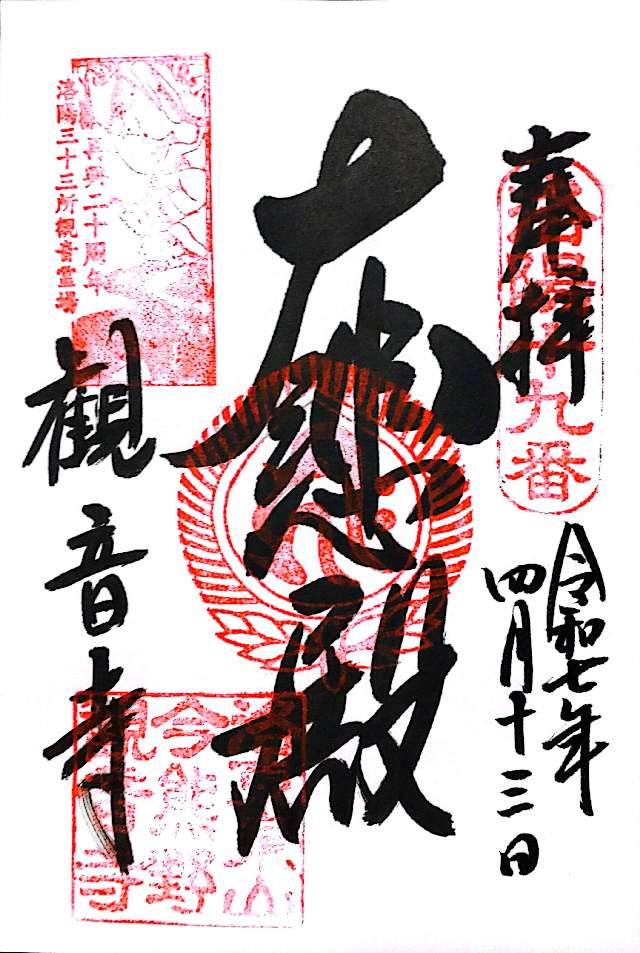 奉拝
洛陽十九番
令和七年
四月十三日
大悲殿
再興二十周年
洛陽三十三所観音霊場
観音寺
今熊野
観音寺